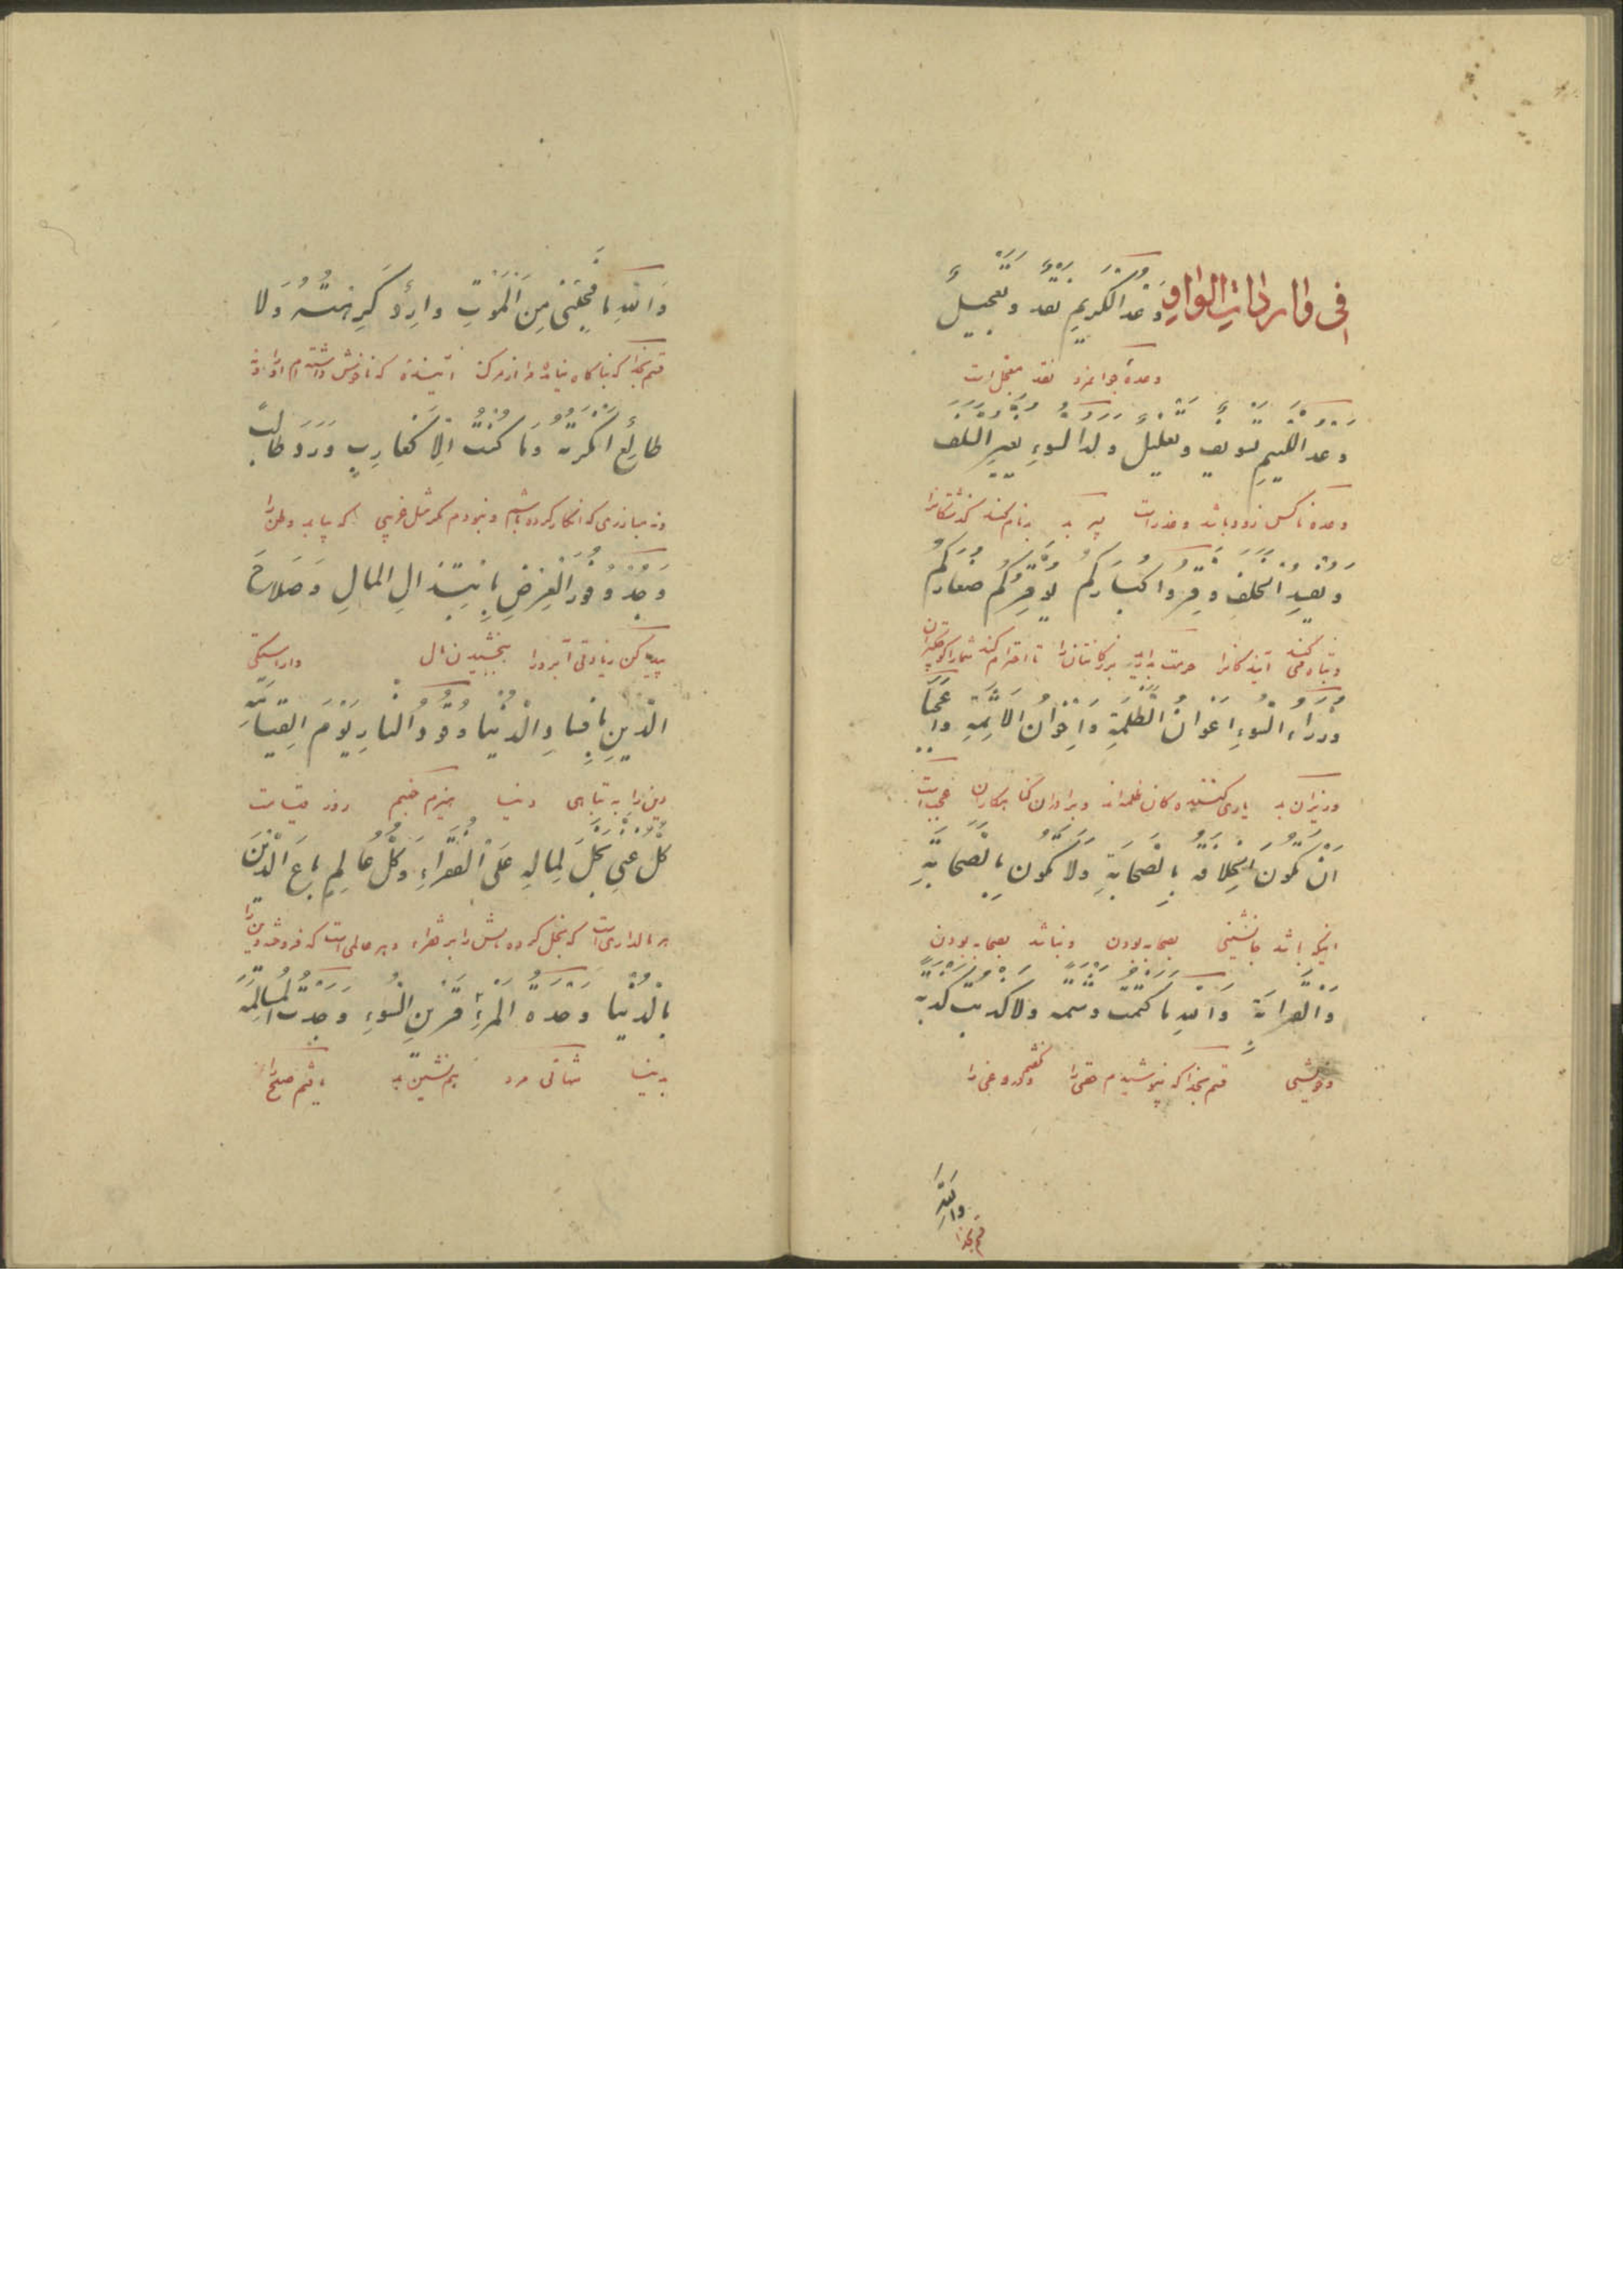 فی واردات الواو وَعْدُ الْكَرِيمِ نَقْدٌ وَتَعْجِيلٌ
وعدهٔ جوانمرد نقد معجل است
وَعْدُ اللَّئِيمِ تَسْوِيفٌ وَتَعْلِيلٌ وَلَدُ السُّوءِ يَعِيرُ السَّلَفَ
وعده ناکس زود باشد وعذر است پسر بد بدنام کند گذشتگانرا
وَيُفْسِدُ الْخَلَفَ وَقِّرُوا كِبَارَكُمْ يُوَقِّرْكُمْ صِغَارُكُمْ
وتباه کند آیندگانرا حرمت بدارید بزرگانتان را تا احترام کند شمارا کوچکتران
وُزَرَاءُ السُّوءِ أَعْوَانُ الظَّلَمَةِ وَإِخْوَانُ الْأَثَمَةِ وَاعَجَبَا
وزیران بد یاری کننده کان ظلمه اند وبرادران گناهکاران عجب است
أَنْ تَكُونَ الْخِلَافَةُ بِالصَّحَابَةِ وَلَا تَكُونُ بِالصَّحَابَةِ
اینکه باشد جانشینی بصحابه بودن ونباشد بصحابه بودن
وَالْقَرَابَةِ وَاللَّهِ مَا كَتَمْتُ وَشْمَةً وَلَا كَذَبْتُ كَذْبَةً
وخویشی قسم بخدا که نپوشیدم حقی را ونگفتم دروغی را
وَاللَّهِ
قسم بخدا
وَاللَّهِ مَا فَجَأَنِي مِنَ الْمَوْتِ وَارِدٌ كَرِهْتُهُ وَلَا
قسم بخدا که ناگاه نیامد مرا از مرگ آینده که ناخوش داشته ام او را ونه
طَالِعٌ أَنْكَرْتُهُ وَمَا كُنْتُ إِلَّا كَقَارِبٍ وَرَدَ وَطَالِبٍ
که انکار کرده باشم ونبودم مگر مثل غریبی که بیابد وطن را
وَجَدَ وُفُورَ الْعِرْضِ بِابْتِذَالِ الْمَالِ وَصَلَاحَ
پیدا کن زیادتی آبرو را ببخشیدن مال واراستگی
الدِّينِ بِإِفْسَادِ الدُّنْيَا وَقُودُ النَّارِ يَوْمَ الْقِيَامَةِ
دین را به تباهی دنیا هیزم جهنم روز قیامت
كُلُّ غَنِيٍّ بَخِلَ بِمَالِهِ عَلَى الْفُقَرَاءِ وَكُلُّ عَالِمٍ بَاعَ الدِّينَ
هر مالداریست که بخل کرده مالش را بر فقراء وهر عالمی است که فروخته دین را
بِالدُّنْيَا وَحْدَةُ الْمَرْءِ قَرِينِ السُّوءِ وَجَدْتُ الْمُسَالَمَةَ
بدنیا تنهائی مرد همنشین بد یافتم صلح را